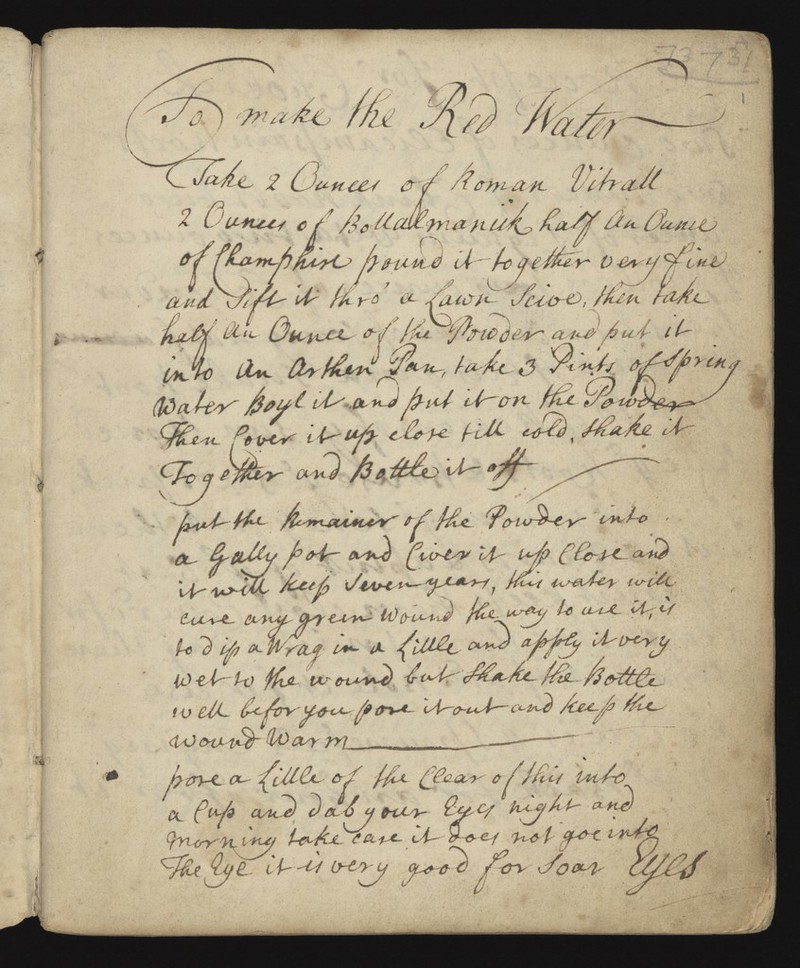 73731
1
To make the Red Water
Take 2 Ounces of Roman Vitrall
2 Ounces of Bollalmanick half An Ounce
of Champhire pound it together very fine
and Sift it thro' a Lawn Seive, then take
half an Ounce of the Powder and put it
into an Arthen Pan, take 3 Pints of Spring
Water Boyl it and put it on the Powder
Then Cover it up close till cold, shake it
Together and Bottle it off
put the Remainer of the Powder into
a Gally pot and Civer it up Close and
it will keep Seven years, this water will
cure any green wound the way to use it, is
to dip a Wrag in a Little and apply it very
wet to the wound but shake the Bottle
well befor you pore it out and keep the
wound Warm
pore a Little of the Clear of this into
a Cup and dab your Eyes night and
morning take care it does not goe into
The Eye it is very good for Soar Eyes